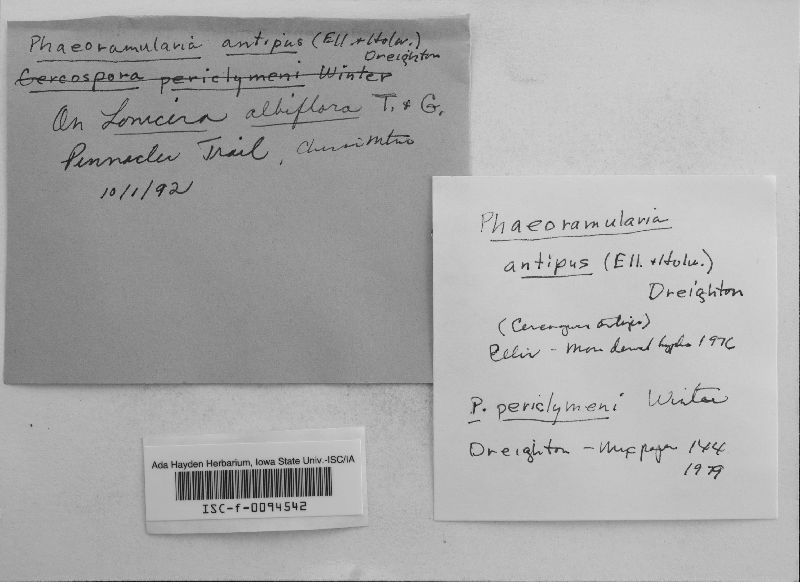 Phaeoramularia antipus (Ell. & Holw.)
Dreighton
Cercospora periclymeni Winter
On Lonicera albiflora T. & G.
Pinnacles Trail, Chisos Mtns
10/1/92
Phaeoramularia
antipus (Ell. & Holw.)
Dreighton
(Cercospora antipus)
Ellis - More demat. hypho 1976
P. periclymeni Winter
Dreighton - Myc paper 144
1979
Ada Hayden Herbarium, Iowa State Univ.-ISC/IA
ISC-f-0094542